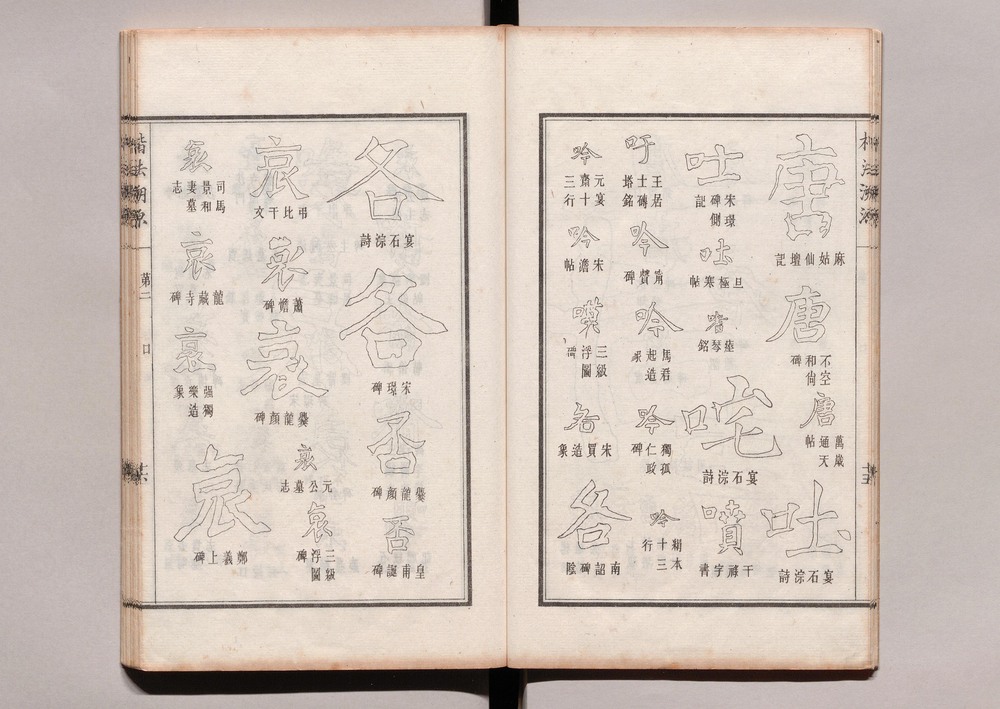 唐
麻姑仙壇記
唐
不空和尚碑
唐
萬歲通天帖
吐
宴石淙詩
吐
宋璟碑側記
吐
旦極寒帖
瘞琴銘
咤
宴石淙詩
噴
干祿字書
吁
王居士磚塔銘
吟
甯贙碑
吟
馬君起造象
吟
獨孤仁政碑
吟
潁本十三行
吟
元宴齋十三行
吟
宋儋帖
嘆
三級浮圖碑
各
宋買造象
各
南詔碑陰
各
宴石淙詩
各
宋璟碑
否
爨龍顏碑
否
皇甫誕碑
哀
弔比干文
哀
蕭憺碑
哀
爨龍顏碑
哀
元公墓志
哀
三級浮圖碑
哀
司馬景和妻墓志
哀
龍藏寺碑
哀
强獨樂造象
哀
鄭羲上碑
楷法溯源
第二
口
十六